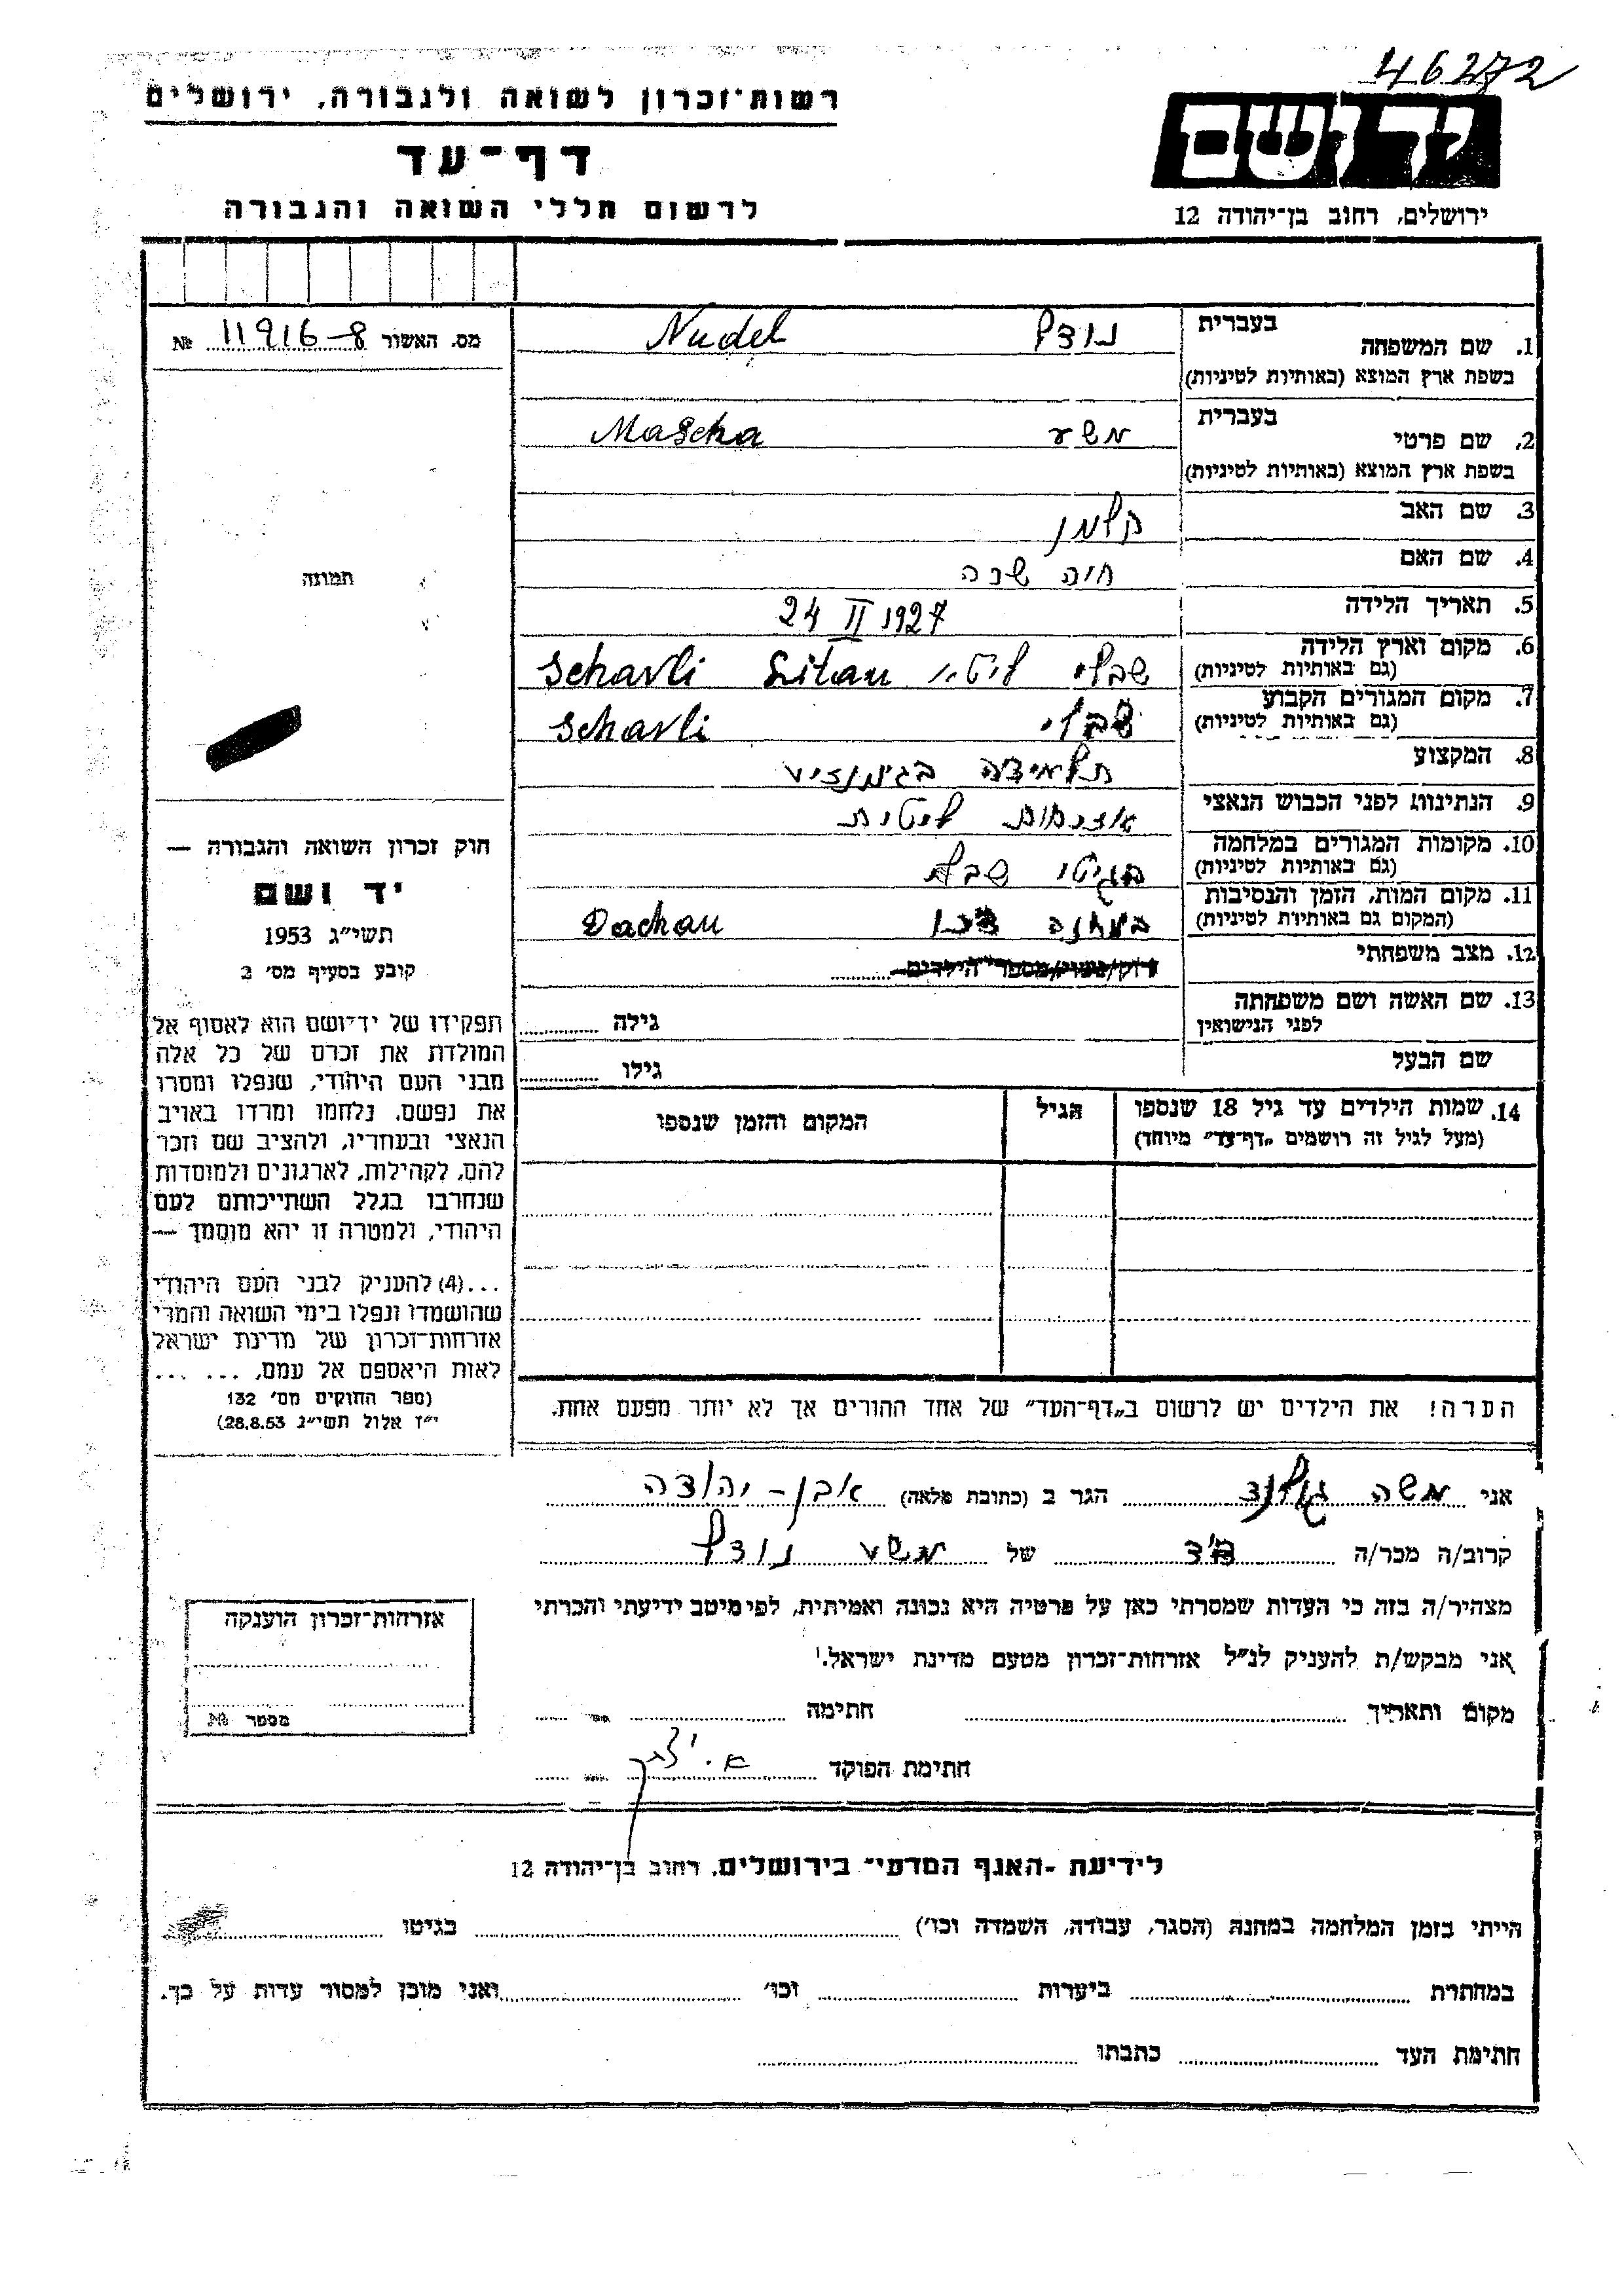 46272
רשות־זכרון לשואה ולגבורה, ירושלים
דף־עד
לרשום חללי השואה והגבורה
יד ושם
ירושלים, רחוב בן־יהודה 12
מס. האשור 11916-8 №
1. שם המשפחה בעברית נודל Nudel
בשפת ארץ המוצא (באותיות לטיניות)
2. שם פרטי בעברית משע Mascha
בשפת ארץ המוצא (באותיות לטיניות)
3. שם האב קלמן
4. שם האם חיה שנה
5. תאריך הלידה 24 II 1927
6. מקום וארץ הלידה (גם באותיות לטיניות) שבלי Schavli Litau
7. מקום המגורים הקבוע (גם באותיות לטיניות) שבלי Schavli
8. המקצוע תלמידה בגימנזיע
9. הנתינות לפני הכבוש הנאצי אזרחות ליטית
10. מקומות המגורים במלחמה (גם באותיות לטיניות) בגיטו
11. מקום המות, הזמן והנסיבות (המקום גם באותיות לטיניות) במחנה Dachau
12. מצב משפחתי רוק/נשוי/מספר הילדים
13. שם האשה ושם משפחתה לפני הנישואין גילה
שם הבעל גילו
14. שמות הילדים עד גיל 18 שנספו (מעל לגיל זה רושמים „דף־עד" מיוחד) הגיל המקום והזמן שנספו
הערה! את הילדים יש לרשום ב„דף־העד" של אחד ההורים אך לא יותר מפעם אחת.
תמונה
חוק זכרון השואה והגבורה —
יד ושם
תשי"ג 1953
קובע בסעיף מס' 2
תפקידו של יד־ושם הוא לאסוף אל
המולדת את זכרם של כל אלה
מבני העם היהודי, שנפלו ומסרו
את נפשם, נלחמו ומרדו באויב
הנאצי ובעוזריו, ולהציב שם וזכר
להם, לקהילות, לארגונים ולמוסדות
שנחרבו בגלל השתייכותם לעם
היהודי, ולמטרה זו יהא מוסמך —
...(4) להעניק לבני העם היהודי
שהושמדו ונפלו בימי השואה והמרי
אזרחות־זכרון של מדינת ישראל
לאות היאספם אל עמם, ... ...
(ספר החוקים מס' 132
י"ז אלול תשי"ג 28.8.53)
אני משה הגר ב (כתובת מלאה) אבן - יהודה
קרוב/ה מכר/ה של משע נודל
מצהיר/ה בזה כי העדות שמסרתי כאן על פרטיה היא נכונה ואמיתית, לפי מיטב ידיעתי והכרתי
אני מבקש/ת להעניק לנ"ל אזרחות־זכרון מטעם מדינת ישראל.
מקום ותאריך חתימה
חתימת הפוקד
אזרחות־זכרון הוענקה
מספר №
לידיעת „האגף המדעי" בירושלים, רחוב בן־יהודה 12
הייתי בזמן המלחמה במחנה (הסגר, עבודה, השמדה וכו') בגיטו
במחתרת ביערות וכו' ואני מוכן למסור עדות על כך.
חתימת העד כתבתו